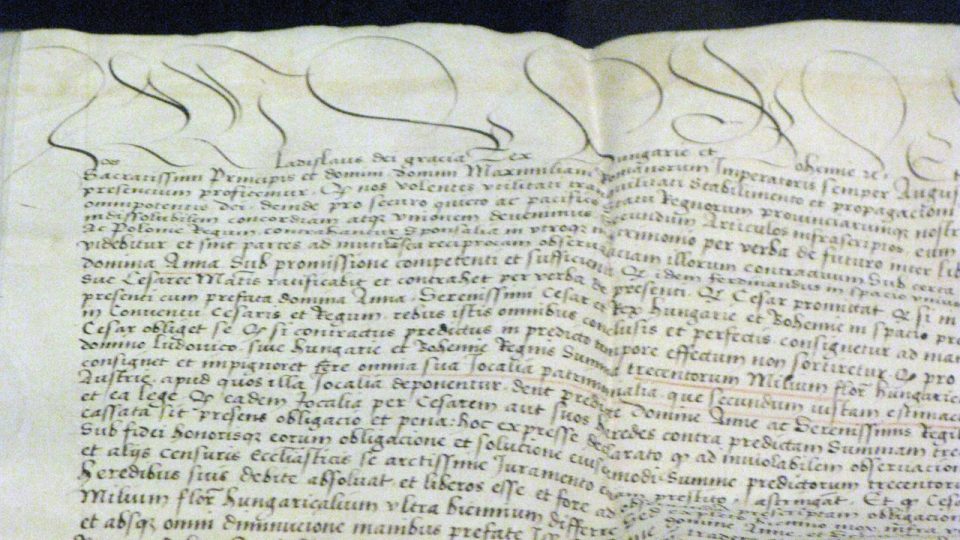 Nos Ladislaus dei gracia Rex Hungarie et Bohemie
Sacratissimi Principis et domini domini Maximiliani Romanorum Imperatoris semper Augus
presencium proficemur. Q nos volentes utilitati tran quilitati Stabilimento et propagacioni
omnipotentis Dei, deinde pro securo quieto ac pacifico statu Regnorum provinciarumq nostr
indissolubilem concordiam atq unionem devenimus secundum Articulos infrascriptos
Ac Polonie Regum contrahantur sponsalia in utroq matrimonio per verba de futuro inter lib
videbitur et sint partes ad reciprocam observanciam illorum contractuum Sub certa
domina Anna Sub promissione competenti et sufficienti Q idem ferdinandus in spacio unius
sue Cesaree Matis ratificabit et contrahet per verba de presenti. Et Cesar promittat Q si in
presenti cum prefata domina Anna. Serenissimi Cesar et Rex Hungarie et Bohemie in Spacio pre
in Conventu Cesaris et Regum. rebus istis omnibus conclusis et perfectis. consignetur ad man
Cesar obliget se Q si contractus predictus in predicto tempore effectum non sortiretur. Q pro
domino Ludovico. sive Hungarie et Bohemie Regnis Summa trecentorum Milium flor hungarica
consignet et impignoret omnia sua Jocalia patrimonialia que secundum iustam estimaci
Austrie. apud quos illa Jocalia deponentur. dent predicte Domine Anne ac Serenissimis Regib
et ea lege Q eadem Jocalia per Cesarem aut suos heredes contra predictam Summam tre
cassata sit presens obligacio et pena: hoc expresse declarato q ad inviolabilem observacion
Sub fidei honorisq eorum obligacione et solucione eiusmodi Summe predictorum trecentor
et alijs censuris Ecclesiasticis se arctissime Juramento prestito astringat. Et q Cesa
heredibus suis debite absolvat et liberos esse et fore ad prescriptam obligacion
Milium flor hungaricalium ultra biennium differre
et absq omni diminucione manibus prefate